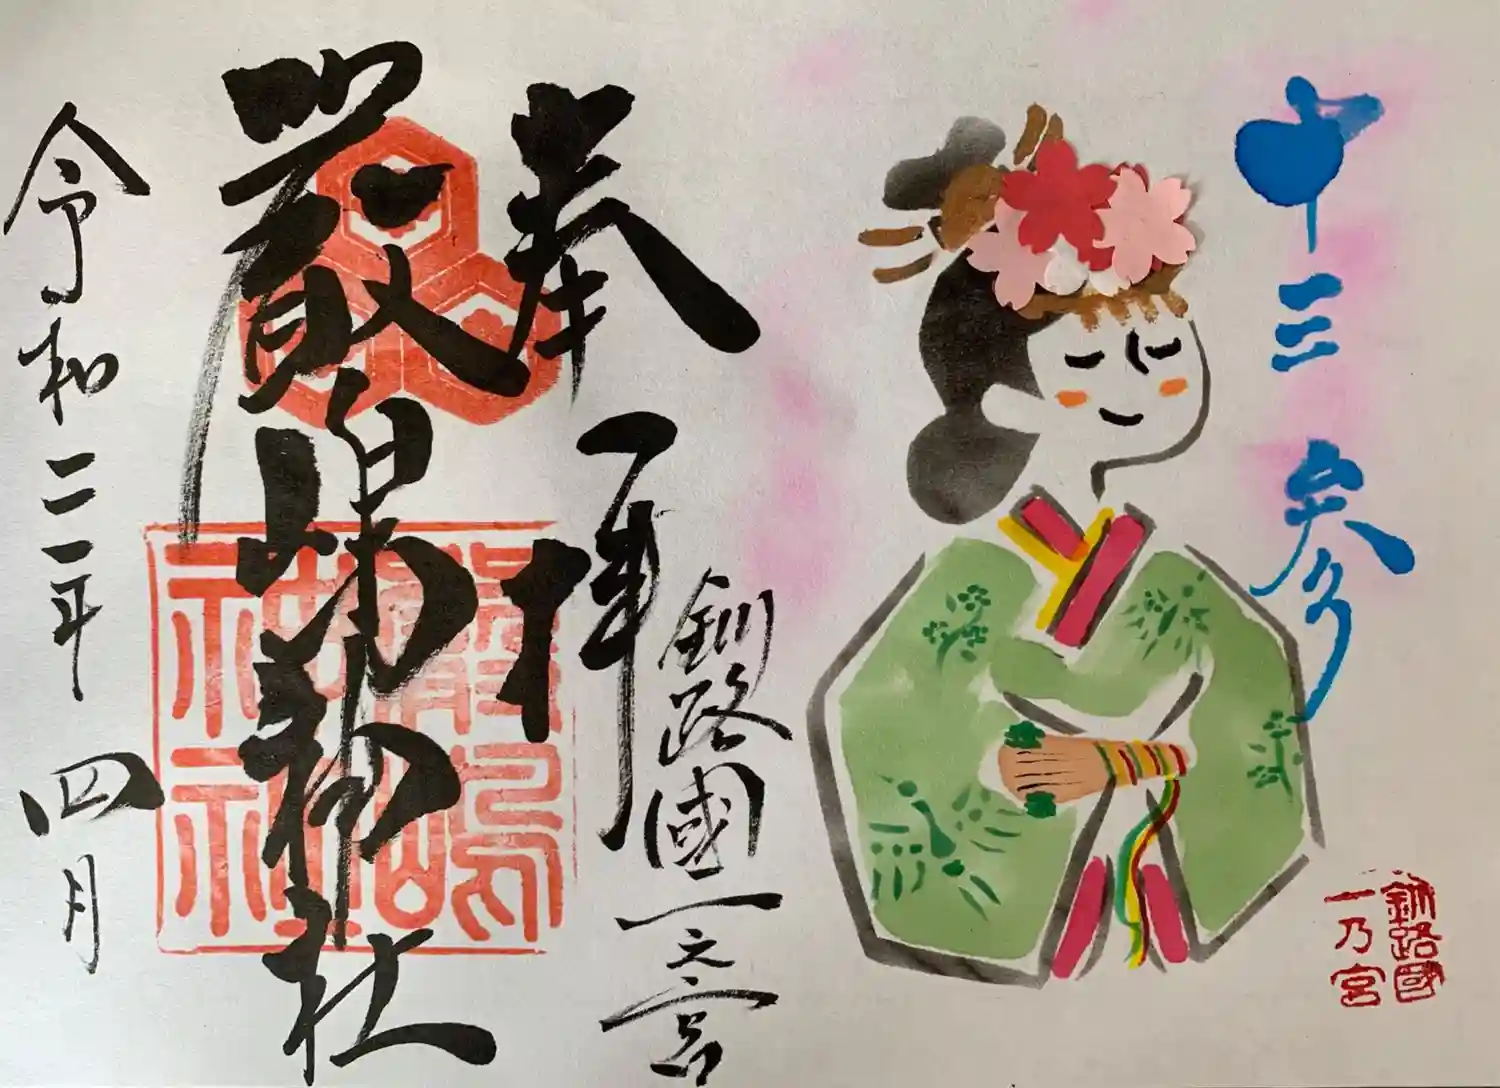 十三参り
釧路國
一乃宮
釧路國一之宮
奉拝
嚴嶋神社
令和二年 四月